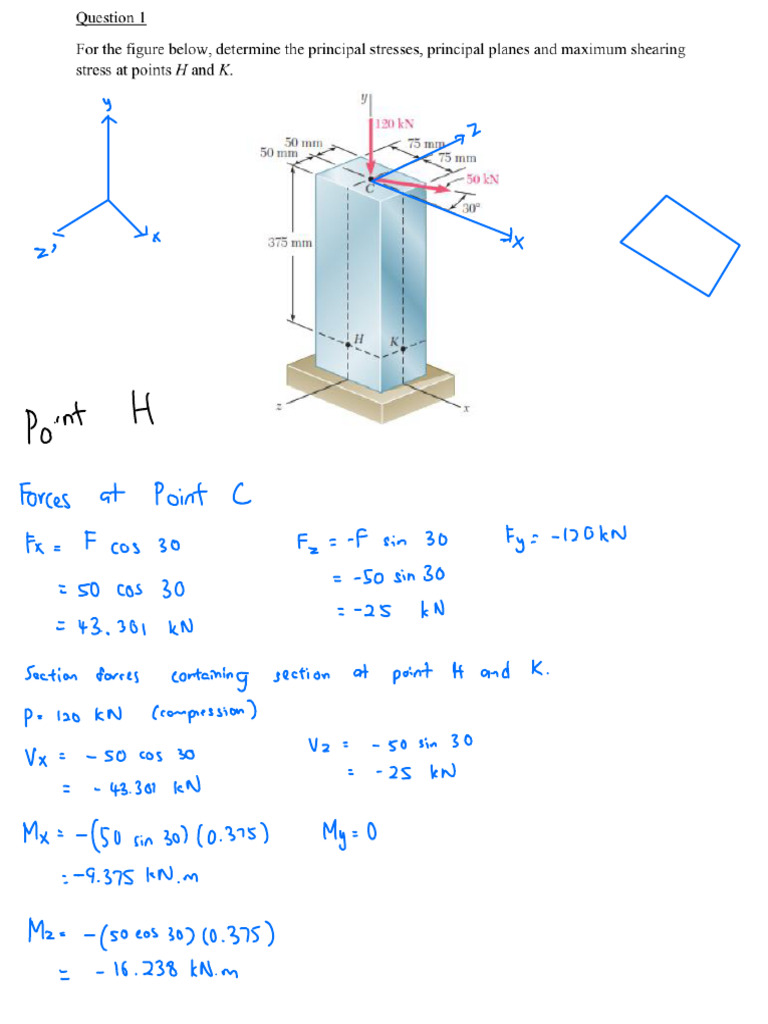 Question 1
For the figure below, determine the principal stresses, principal planes and maximum shearing
stress at points H and K.
y
y
120 kN
z
50 mm
75 mm
50 mm
75 mm
50 kN
C
30°
x
z'
x
375 mm
H
K
z
x
Point H
Forces at Point C
Fx = F cos 30
Fz = -F sin 30
Fy = -120kN
= 50 cos 30
= -50 sin 30
= 43.301 kN
= -25 kN
Section forces containing section at point H and K.
P = 120 kN (compression)
Vx = - 50 cos 30
Vz = - 50 sin 30
= - 43.301 kN
= - 25 kN
Mx = -(50 sin 30) (0.375)
My = 0
= -9.375 kN.m
Mz = -(50 cos 30) (0.375)
= - 16.238 kN.m